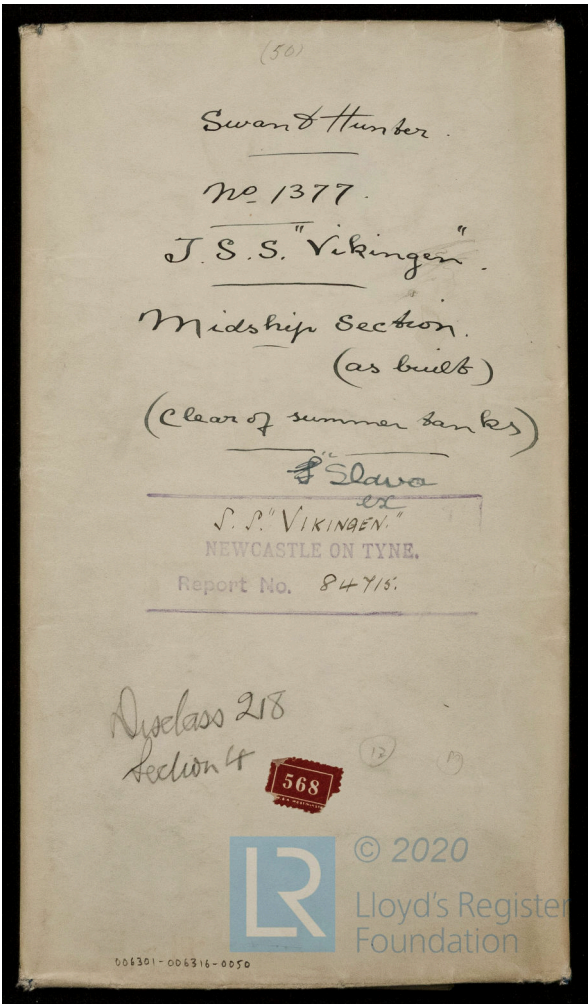 (50)
Swan & Hunter.
No 1377.
T.S.S. "Vikingen".
Midship Section.
(as built)
(clear of summer tanks)
"Slava
ex
S.S. "VIKINGEN."
NEWCASTLE ON TYNE.
Report No. 84715.
Disclass 218
Section 4
12
568
© 2020
LR
Lloyd's Register
Foundation
006301-006316-0050